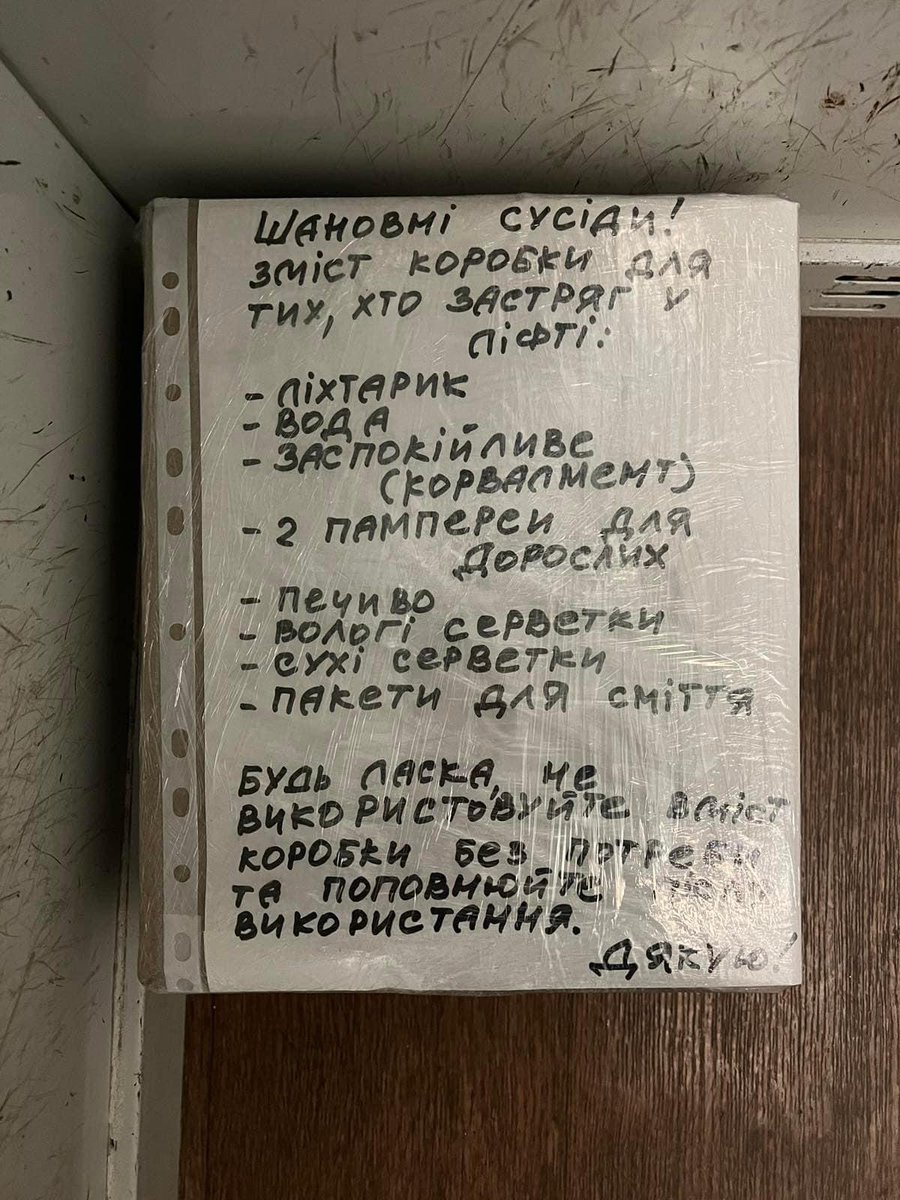 ШАНОВНІ СУСІДИ!
ЗМІСТ КОРОБКИ ДЛЯ
ТИХ, ХТО ЗАСТРЯГ У
ЛІФТІ:
- ЛІХТАРИК
- ВОДА
- ЗАСПОКІЙЛИВЕ
(КОРВАЛМЕНТ)
- 2 ПАМПЕРСИ ДЛЯ
ДОРОСЛИХ
- ПЕЧИВО
- ВОЛОГІ СЕРВЕТКИ
- СУХІ СЕРВЕТКИ
- ПАКЕТИ ДЛЯ СМІТТЯ
БУДЬ ЛАСКА, НЕ
ВИКОРИСТОВУЙТЕ ВМІСТ
КОРОБКИ БЕЗ ПОТРЕБИ
ТА ПОПОВНЮЙТЕ ПІСЛЯ
ВИКОРИСТАННЯ.
ДЯКУЮ!